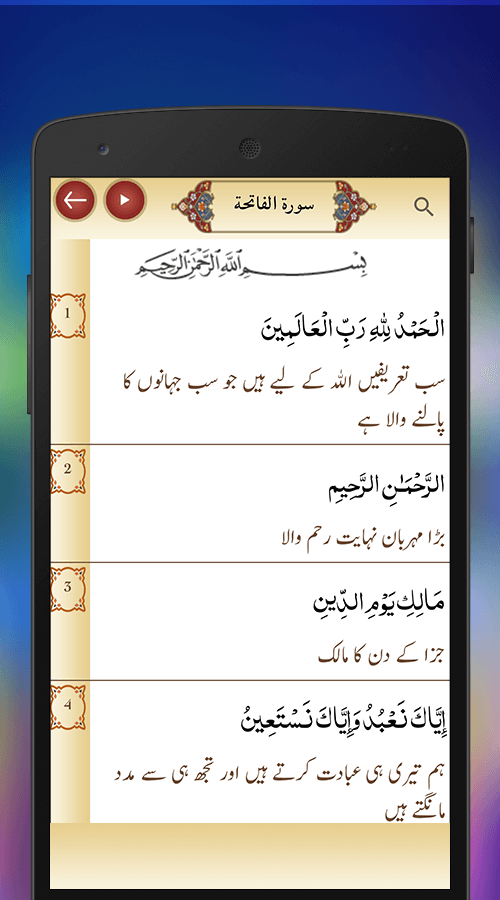 سورة الفاتحة
بِسْمِ اللَّهِ الرَّحْمَٰنِ الرَّحِيمِ
1
الْحَمْدُ لِلَّهِ رَبِّ الْعَالَمِينَ
سب تعریفیں اللہ کے لیے ہیں جو سب جہانوں کا
پالنے والا ہے
2
الرَّحْمَـٰنِ الرَّحِيمِ
بڑا مہربان نہایت رحم والا
3
مَالِكِ يَوْمِ الدِّينِ
جزا کے دن کا مالک
4
إِيَّاكَ نَعْبُدُ وَإِيَّاكَ نَسْتَعِينُ
ہم تیری ہی عبادت کرتے ہیں اور تجھ ہی سے مدد
مانگتے ہیں